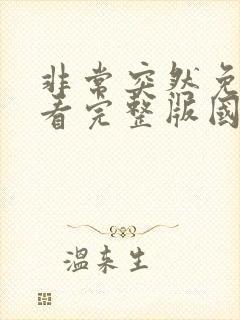 非常突然免
看完整版國
溫来生